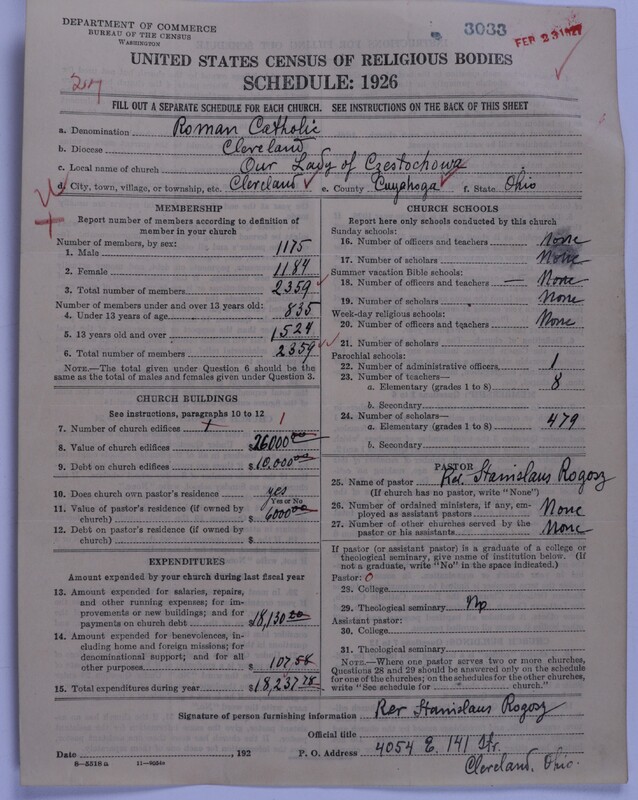 DEPARTMENT OF COMMERCE
BUREAU OF THE CENSUS
WASHINGTON
3033
FEB 23 1927
UNITED STATES CENSUS OF RELIGIOUS BODIES
SCHEDULE: 1926
FILL OUT A SEPARATE SCHEDULE FOR EACH CHURCH. SEE INSTRUCTIONS ON THE BACK OF THIS SHEET
a. Denomination Roman Catholic
b. Diocese Cleveland
c. Local name of church Our Lady of Czestochowa
d. City, town, village, or township, etc. Cleveland e. County Cuyahoga f. State Ohio
MEMBERSHIP
Report number of members according to definition of
member in your church
Number of members, by sex:
1. Male 1175
2. Female 1184
3. Total number of members 2359
Number of members under and over 13 years old:
4. Under 13 years of age 835
5. 13 years old and over 1524
6. Total number of members 2359
NOTE.—The total given under Question 6 should be
same as the total of males and females given under Question 3.
CHURCH BUILDINGS
See instructions, paragraphs 10 to 12
7. Number of church edifices 1
8. Value of church edifices $26000.00
9. Debt on church edifices $10,000.00
10. Does church own pastor's residence yes
Yes or No
11. Value of pastor's residence (if owned by
church) $6000.00
12. Debt on pastor's residence (if owned by
church) $
EXPENDITURES
Amount expended by your church during last fiscal year
13. Amount expended for salaries, repairs,
and other running expenses; for im-
provements or new buildings; and for
payments on church debt $18,130.20
14. Amount expended for benevolences, in-
cluding home and foreign missions; for
denominational support; and for all
other purposes $107.58
15. Total expenditures during year $18,237.78
CHURCH SCHOOLS
Report here only schools conducted by this church
Sunday schools:
16. Number of officers and teachers None
17. Number of scholars None
Summer vacation Bible schools:
18. Number of officers and teachers None
19. Number of scholars None
Week-day religious schools:
20. Number of officers and teachers None
21. Number of scholars
Parochial schools:
22. Number of administrative officers 1
23. Number of teachers—
a. Elementary (grades 1 to 8) 8
b. Secondary
24. Number of scholars—
a. Elementary (grades 1 to 8) 479
b. Secondary
PASTOR
25. Name of pastor Rev. Stanislaus Rogosz
(If church has no pastor, write "None")
26. Number of ordained ministers, if any, em-
ployed as assistant pastors None
27. Number of other churches served by the
pastor or his assistants None
If pastor (or assistant pastor) is a graduate of a college or
theological seminary, give name of institution below. (If
not a graduate, write "No" in the space indicated.)
Pastor: 0
28. College
29. Theological seminary No
Assistant pastor:
30. College
31. Theological seminary
NOTE.—Where one pastor serves two or more churches,
Questions 28 and 29 should be answered only on the schedule
for one of the churches; on the schedules for the other churches,
write "See schedule for church."
Signature of person furnishing information Rev Stanislaus Rogosz
Official title
Date , 192 P. O. Address 4054 E. 141 Str.
8—5518a 11—9054a Cleveland, Ohio.